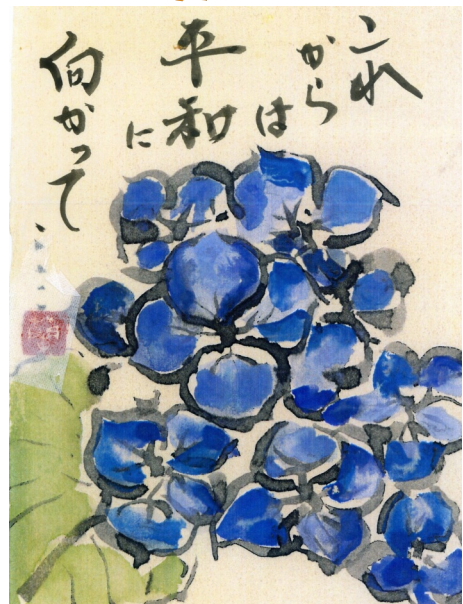 これ
から
は
平和
に
向かって